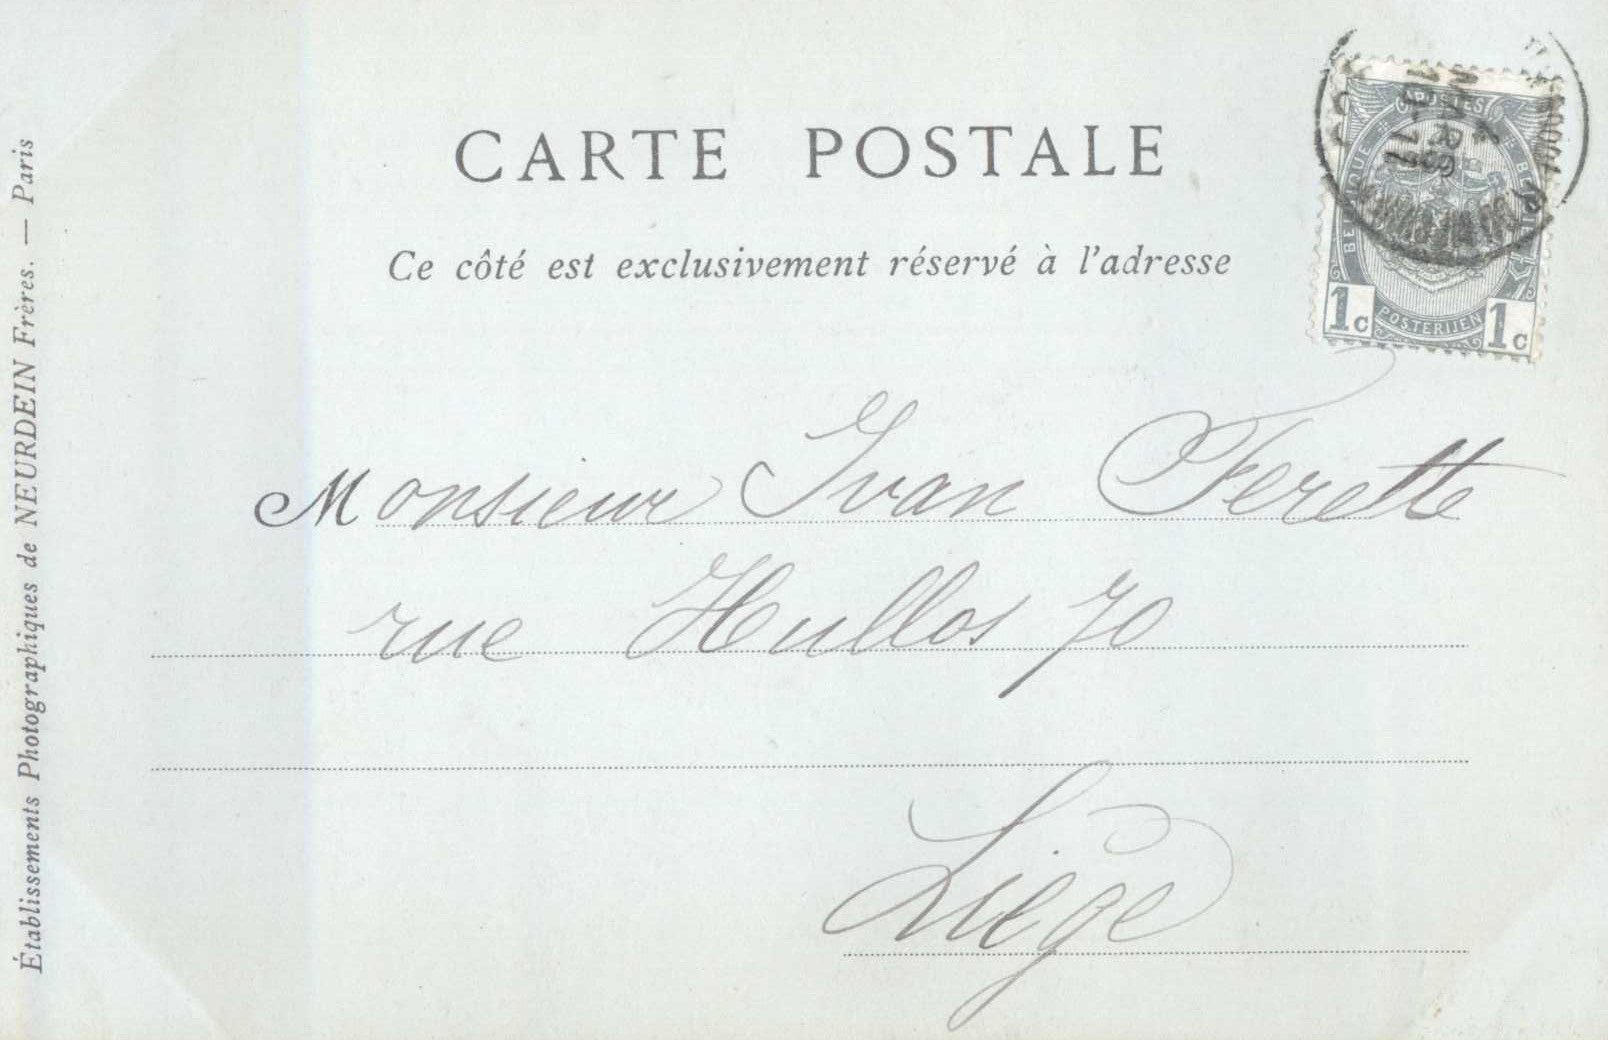 CARTE POSTALE
Ce côté est exclusivement réservé à l'adresse
POSTES
BELGIQUE BELGIË
POSTERIJEN
1c 1c
Monsieur Ivan Ferette
rue Hullos 70
Liège
Établissements Photographiques de NEURDEIN Frères. — Paris